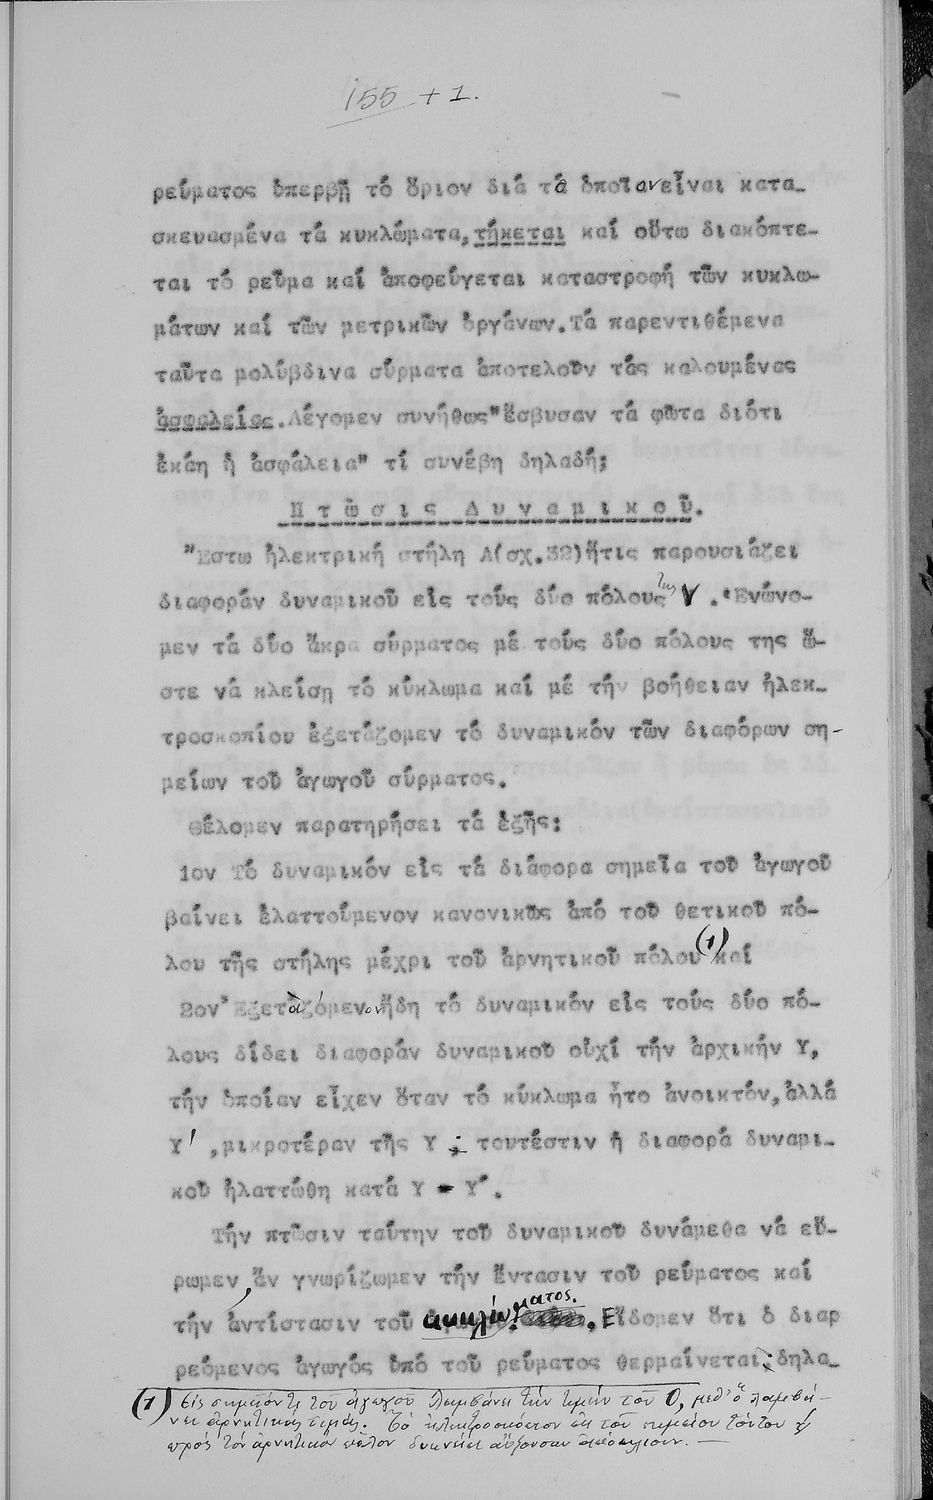 155 + 1.
ρεύματος ὑπερβῇ τό ὅριον διά τά ὁποῖα νεἶναι κατα-
σκευασμένα τά κυκλώματα, τήκεται καί οὕτω διακόπτε-
ται τό ρεῦμα καί ἀποφεύγεται καταστροφή τῶν κυκλω-
μάτων καί τῶν μετρικῶν ὀργάνων. Τά παρεντιθέμενα
ταῦτα μολύβδινα σύρματα ἀποτελοῦν τάς καλουμένας
ἀσφαλείας. Λέγομεν συνήθως "ἔσβυσαν τά φῶτα διότι
ἐκάη ἡ ἀσφάλεια" τί συνέβη δηλαδή;
Π τ ῶ σ ι ς Δ υ ν α μ ι κ ο ῦ.
"Εστω ἠλεκτρική στήλη Α(σχ.32)ἥτις παρουσιάζει
διαφοράν δυναμικοῦ εἰς τούς δύο πόλους της V . 'Ενώνο-
μεν τά δύο ἄκρα σύρματος μέ τούς δύο πόλους της ὥ-
στε νά κλείσῃ τό κύκλωμα καί μέ τήν βοήθειαν ἠλεκ-
τροσκοπίου ἐξετάζομεν τό δυναμικόν τῶν διαφόρων ση-
μείων τοῦ ἀγωγοῦ σύρματος.
Θέλομεν παρατηρήσει τά ἑξῆς:
1ον Τό δυναμικόν εἰς τά διάφορα σημεῖα τοῦ ἀγωγοῦ
βαίνει ἐλαττούμενον κανονικῶς ἀπό τοῦ θετικοῦ πό-
λου τῆς στήλης μέχρι τοῦ ἀρνητικοῦ πόλου (1) καί
2ον 'Εξεταζόμενον ἤδη τό δυναμικόν εἰς τούς δύο πό-
λους δίδει διαφοράν δυναμικοῦ οὐχί τήν ἀρχικήν Υ,
τήν ὁποίαν εἶχεν ὅταν τό κύκλωμα ἦτο ἀνοικτόν, ἀλλά
Υ' , μικροτέραν τῆς Υ ; τουτέστιν ἡ διαφορά δυναμι-
κοῦ ἠλαττώθη κατά Υ - Υ'.
Τήν πτῶσιν ταύτην τοῦ δυναμικοῦ δυνάμεθα νά εὕ-
ρωμεν, ἄν γνωρίζωμεν τήν ἔντασιν τοῦ ρεύματος καί
τήν ἀντίστασιν τοῦ κυκλώματος. Εἴδομεν ὅτι ὁ διαρ
ρεόμενος ἀγωγός ὑπό τοῦ ρεύματος θερμαίνεται; δηλα-
(1) Εἰς σημεῖόν τι τοῦ ἀγωγοῦ λαμβάνει τήν τιμήν τοῦ 0, μεθ' ὅ λαμβά-
νει ἀρνητικάς τιμάς. Τό ἠλεκτροσκόπιον ἐκ τοῦ σημείου τούτου
πρός τόν ἀρνητικόν πόλον δεικνύει αὔξουσαν ἀπόκλισιν. —